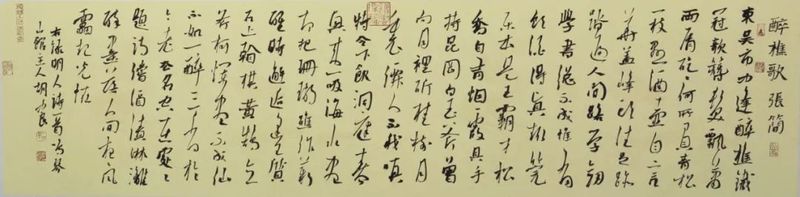 醉樵歌 張簡
東吴市中逢醉樵鐵
冠欹簪髮飄蕭
兩肩矻矻何所負青松
一枝懸酒壺自言
華蓋峰頭住足跡
踏遍人間路學劍
學書總不成惟有
飲酒得真趣管
樂本是王霸才松
喬自有烟霞具手
持昆岡白玉斧曾
向月裡斫桂樹月
裡仙人不我嗔
特令下飲洞庭春
興來一吸海水盡
却把珊瑚樵作薪
醒時邂逅逢王質
石上看棋黃鵠立
斧柯爛盡不成仙
不如一醉三千日於
今老去名空在處處
題詩償酒債淋漓
醉墨落人間夜夜風
雷起光怪
右録明人詩
主人胡